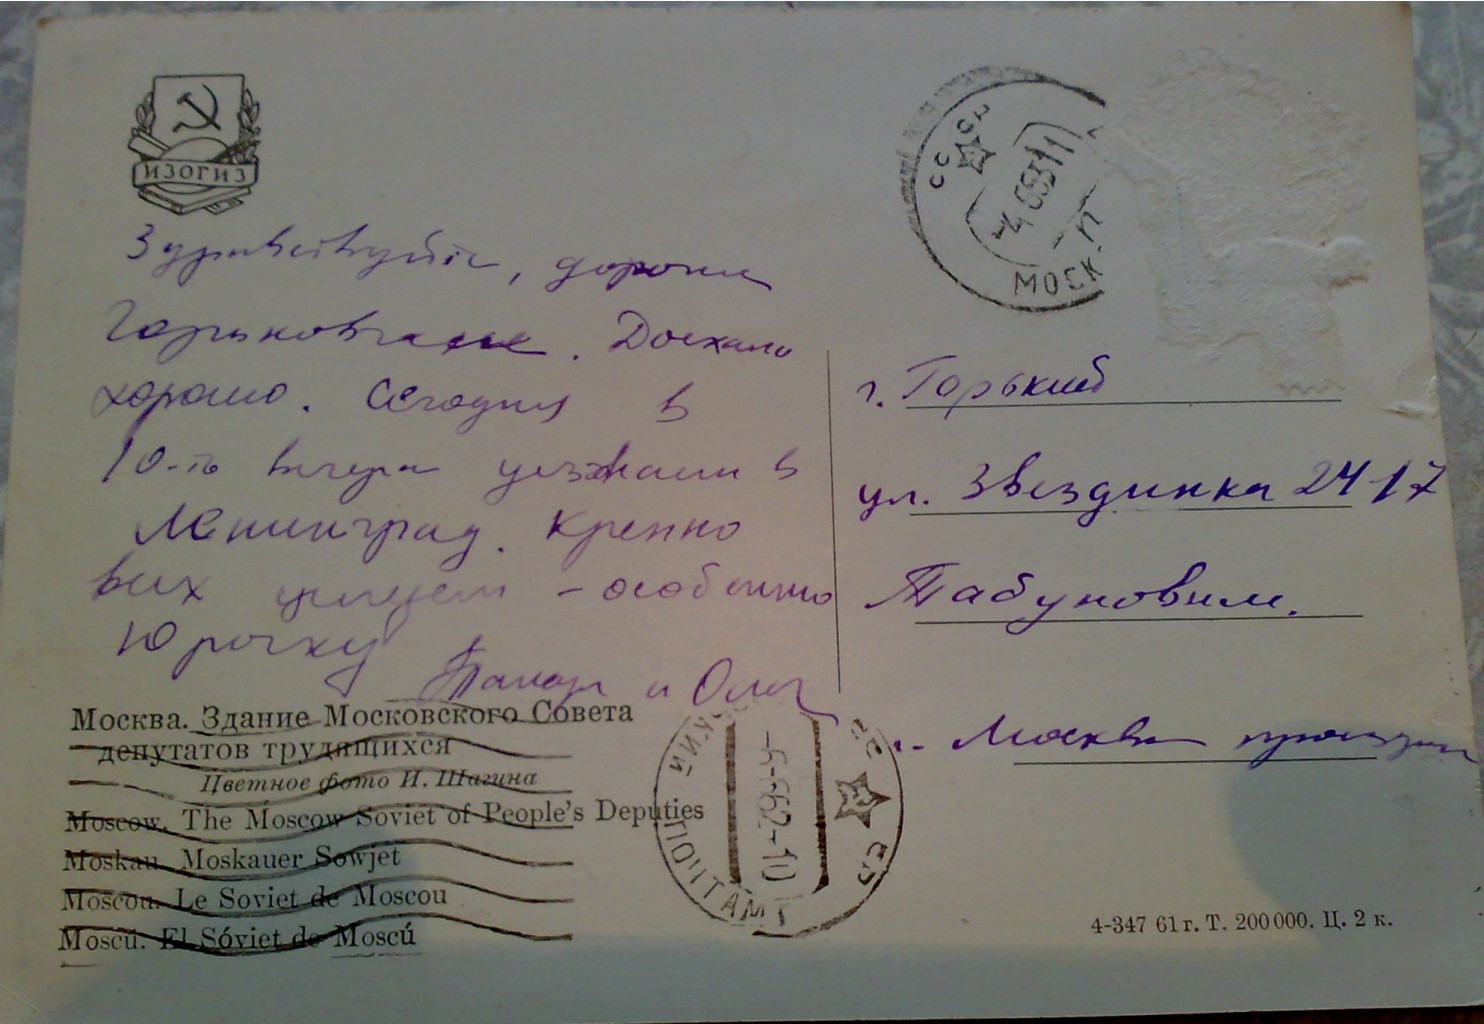 ИЗОГИЗ
Здравствуйте, дорогие
Горьковчане. Доехали
хорошо. Сегодня в
10-ть вечера уезжаем в
Ленинград. Крепко
всех целуем - особенно
Юрочку
и
Москва. Здание Московского Совета
депутатов трудящихся
Цветное фото И. Шагина
Moscow. The Moscow Soviet of People's Deputies
Moskau. Moskauer Sowjet
Moscou. Le Soviet de Moscou
Moscú. El Sóviet de Moscú
СССР
МОСК. П
г. Горький
ул. Звездинка 24 17
Табуновым.
г. Москва проездом
ПОЧТАМТ
-6-662-10
4-347 61 г. Т. 200 000. Ц. 2 к.